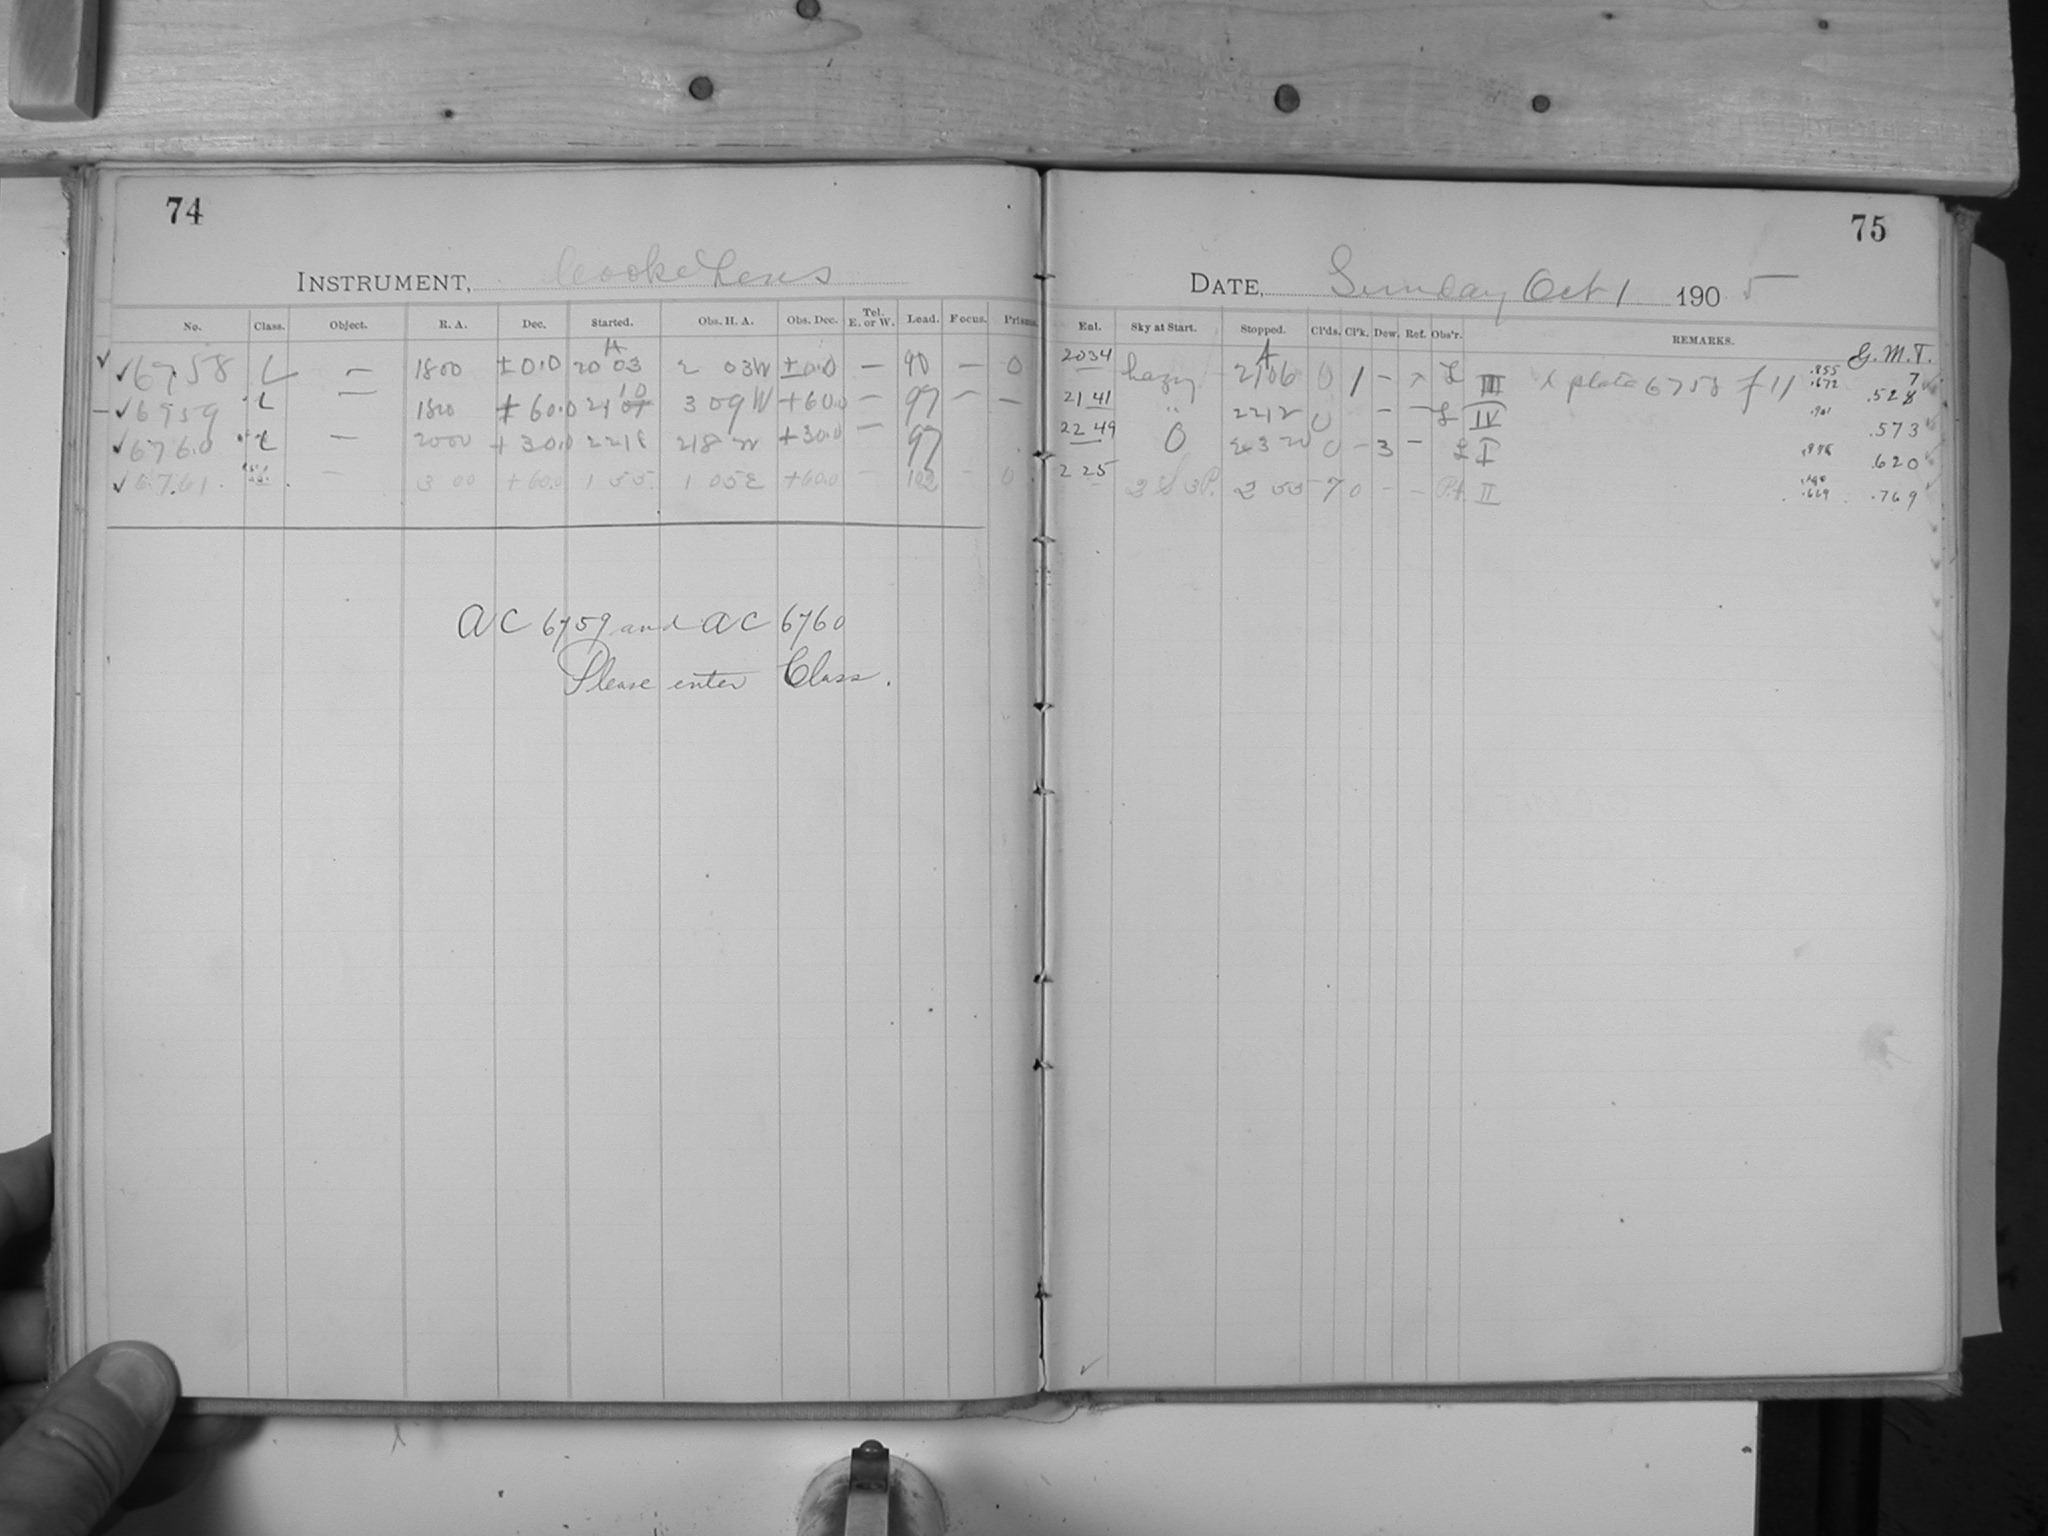 74
INSTRUMENT, Cooke Lens
No. Class. Object. R. A. Dec. Started. Obs. H. A. Obs. Dec. Tel. E. or W. Load. Focus. Prisms.
✓ ✓ 6758 L — 1800 ±0.0 20 03 2 03W ±0.0 — 90 — 0
— ✓ 6759 L — 1800 + 60.0 21 10 3 09 W +60.0 — 97 — —
✓ 6760 L — 2000 + 30.0 2218 218 W +30.0 — 97
✓ 6761. — 3 00 +60.0 1 55 1 05E +60.0 — 102 — 0
AC 6759 and AC 6760
Please enter Class.
75
DATE, Sunday Oct 1 1905
Enl. Sky at Start. Stopped. Cl'ds. Cl'k. Dew. Ref. Obs'r. REMARKS.
G. M. T.
2034 hazy 2106 0 1 — L III x plate 6758 f 11 .855 .672 .528
2141 " 2212 0 — — L IV .573
2249 0 2320 0 – 3 – L I .620
2 25 2 55 7 0 – – II .669 .769